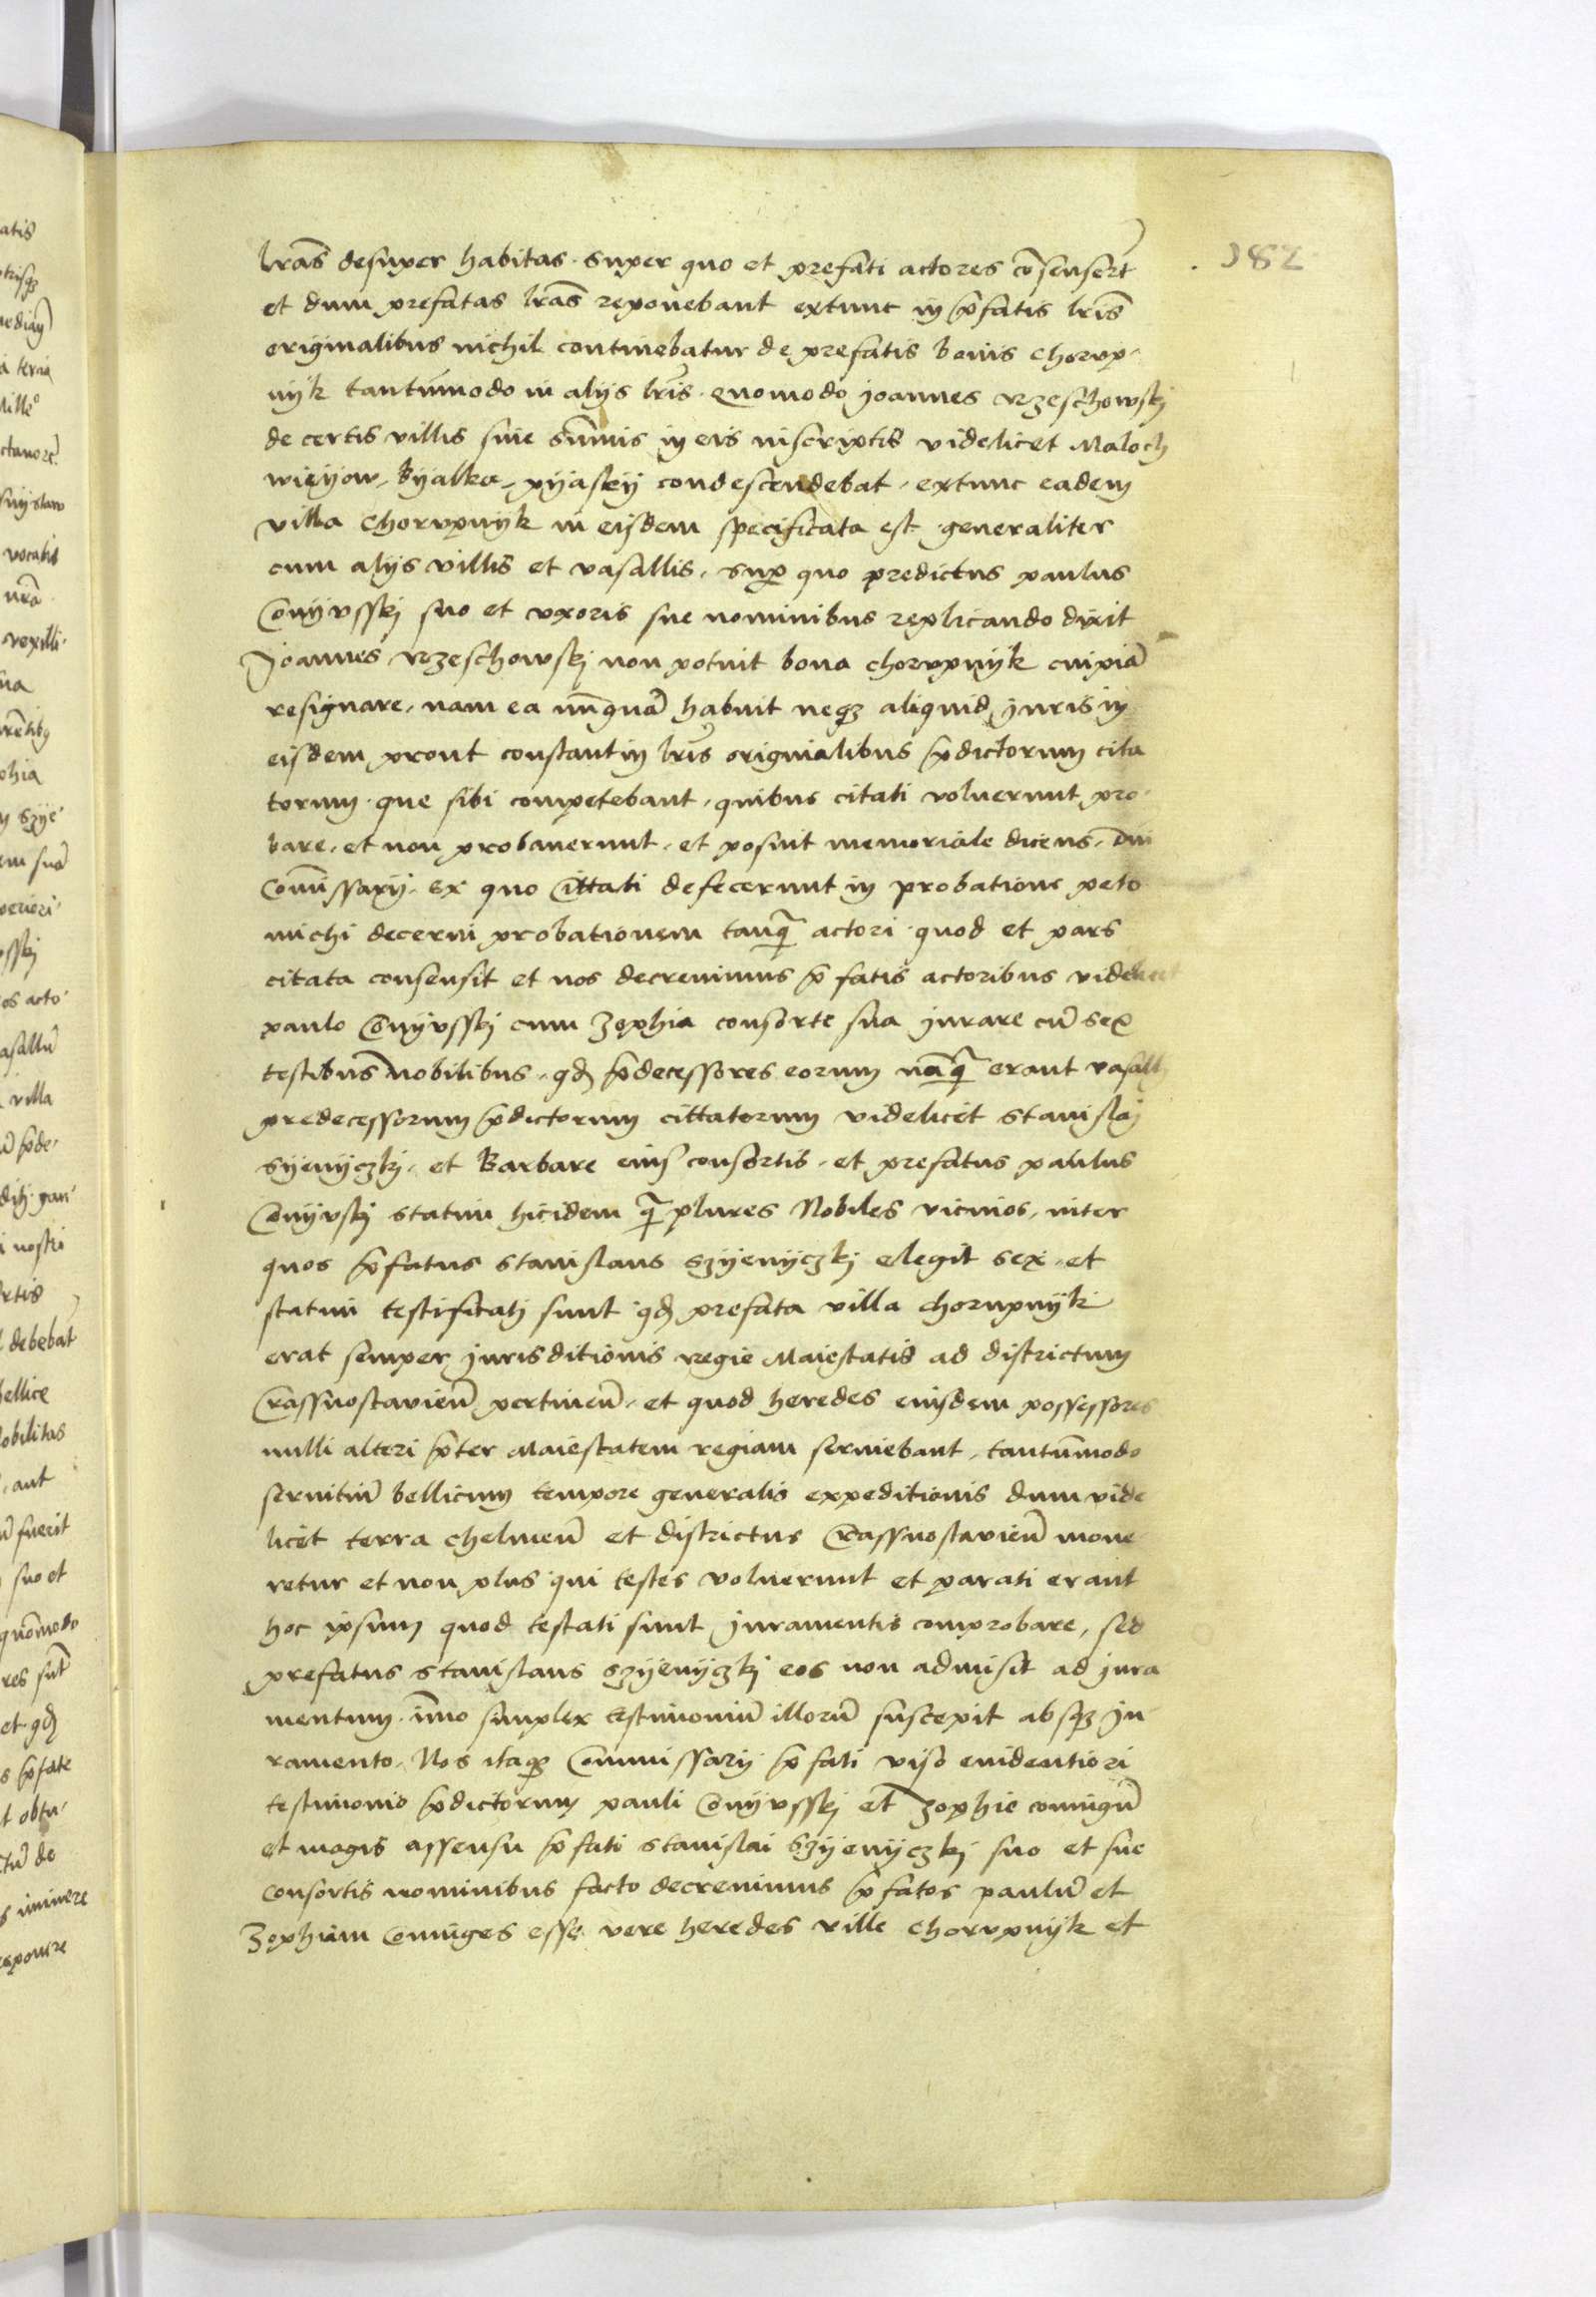 182
lr̃as desuper habitas. super quo et prefati actores cõsensert̃
et dum prefatas lr̃as reponebant extunc in p̃fatis lr̃is
originalibus nichil continebatur de prefatis bonis chorup-
nyk tantum̃odo in alijs lr̃is. quomodo joannes rzeschowskj
de certis villis siue sum̃is in eis inscriptis videlicet Maloch
wieyow, byalka, pyasky condescendebat, extunc eadem
villa chorupnyk in eisdem specificata est generaliter
cum alijs villis et vasallis, sup̱ quo predictus paulus
Conyusskj suo et uxoris sue nominibus replicando dixit
Joannes rzeschowskj non potuit bona chorupnyk cuipiã
resignare, nam ea nun̄quã habuit neqz aliquid juris in
eisdem prout constant in lr̃is originalibus p̃dictorum cita
torum que sibi competebant, quibus citati voluerunt pro-
bare, et non probauerunt, et posuit memoriale dicens, dñi
Com̃issarij. ex quo Cittati defecerunt in probatione peto
michi decerni probationem tanq̃ actori quod et pars
citata consensit et nos decreuimus p̃fatis actoribus videlicet
paulo Conyusskj cum Zophia consorte sua jurare cũ sex
testibus nobilibus, qđ p̃decessores eorum nũq̃ erant vasalli
predecessorum p̃dictorum cittatorum videlicet stanislaj
syenyczkj, et Barbare eius consortis, et prefatus paulus
Conyuskj statuit hicidem q̃plures Nobiles vicinos, inter
quos p̃fatus stanislaus szyenyczkj elegit sex, et
statim testificatj sunt qđ prefata villa chorupnyk
erat semper jurisditionis regie Maiestatis ad districtum
Crassnostavieñ pertineñ, et quod heredes eiusdem possessores
nulli alteri p̃ter Maiestatem regiam seruiebant, tantum̃odo
seruitiũ bellicum tempore generalis expeditionis dum vide
licet terra chelmeñ et districtus Crassnostavieñ moue
retur et non plus qui testes voluerunt et parati erant
hoc ipsum quod testati sunt juramentis comprobare, sed
prefatus stanislaus szyenyczkj eos non admisit ad jura
mentum. im̃o simplex testimoniũ illorũ suscepit absqz ju-
ramento, Nos itaqz Commissarij p̃fati viso euidentiori
testimonio p̃dictorum pauli Conyusskj et Zophie coniugũ
et magis assensu p̃fati stanislai szyenyczkj suo et sue
consortis nominibus facto decreuimus p̃fatos paulũ et
Zophiam Coniuges esse vere heredes ville chorupnyk et